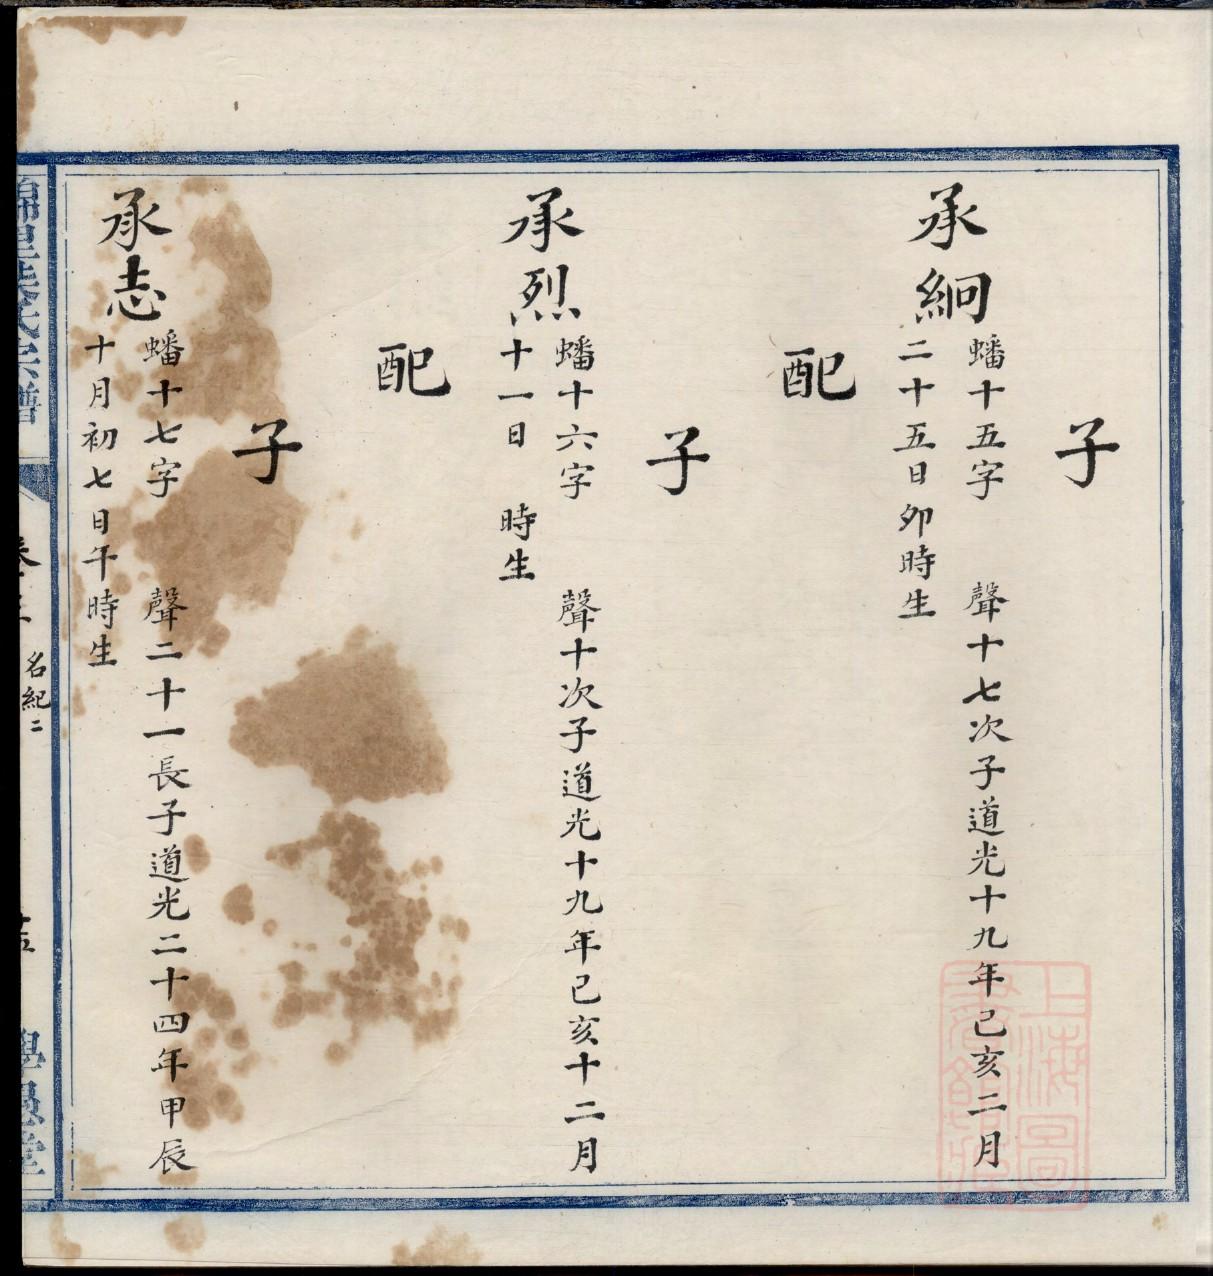 子
承絅
蟠十五字 聲十七次子道光十九年己亥二月
二十五日卯時生
配
子
承烈
蟠十六字 聲十次子道光十九年己亥十二月
十一日 時生
配
子
承志
蟠十七字 聲二十一長子道光二十四年甲辰
十月初七日午時生
名紀二
上海圖
書館藏